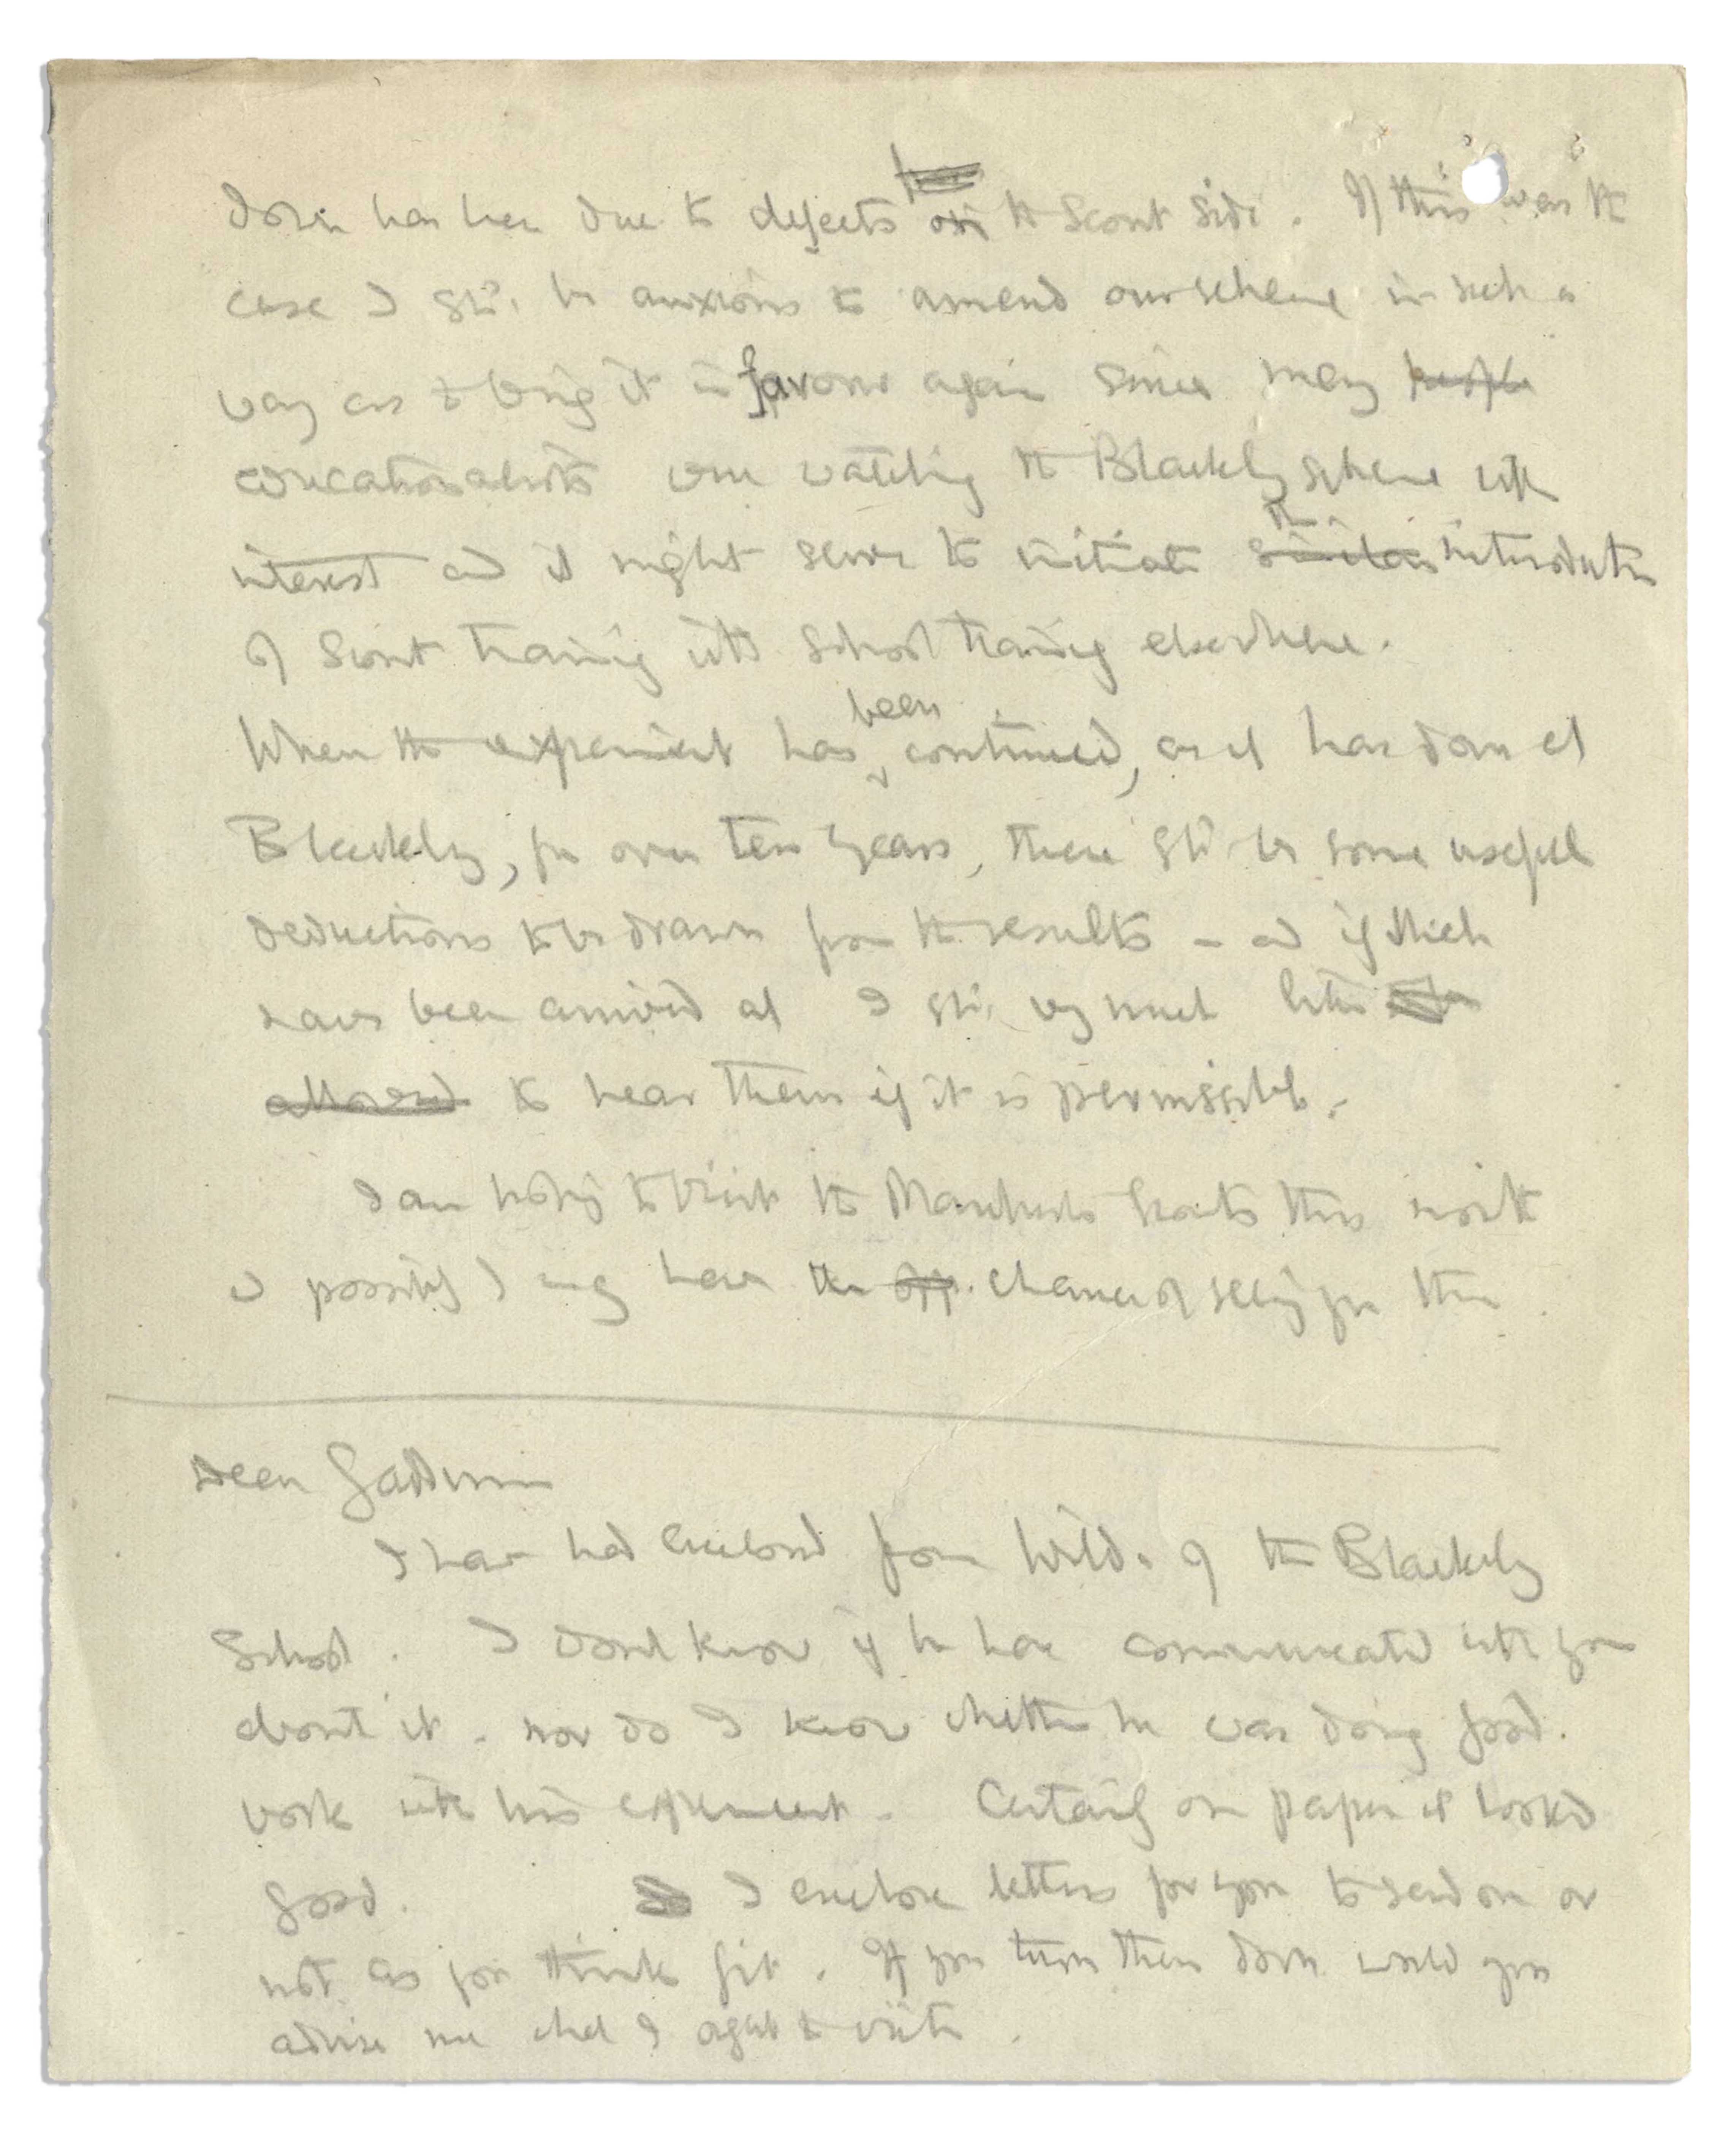 down has been due to defects on the Scout side. If this was the
case I shd. be anxious to amend our scheme in such a
way as to bring it in favour again since many people
educationalists were watching the Blackley scheme with
interest and it might serve to initiate similar the introduction
of Scout training into School training elsewhere.
When the experiment has been continued, as it has done at
Blackley, for over ten years, there shd. be some useful
deductions to be drawn from the results – and if such
have been arrived at I shd. very much like
allowed to hear them if it is permissible.
I am hoping to visit the Manchester Scouts this month
& possibly I may have the opp. chance of seeing you then
Dear Gaddum
I have had enclosed from Wild. of the Blackley
School. I dont know if he has communicated with you
about it – nor do I know whether he was doing good
work with his experiment – Certainly on paper it looked
good. I enclose letters for you to send on or
not as you think fit. If you turn them down would you
advise me what I ought to write.